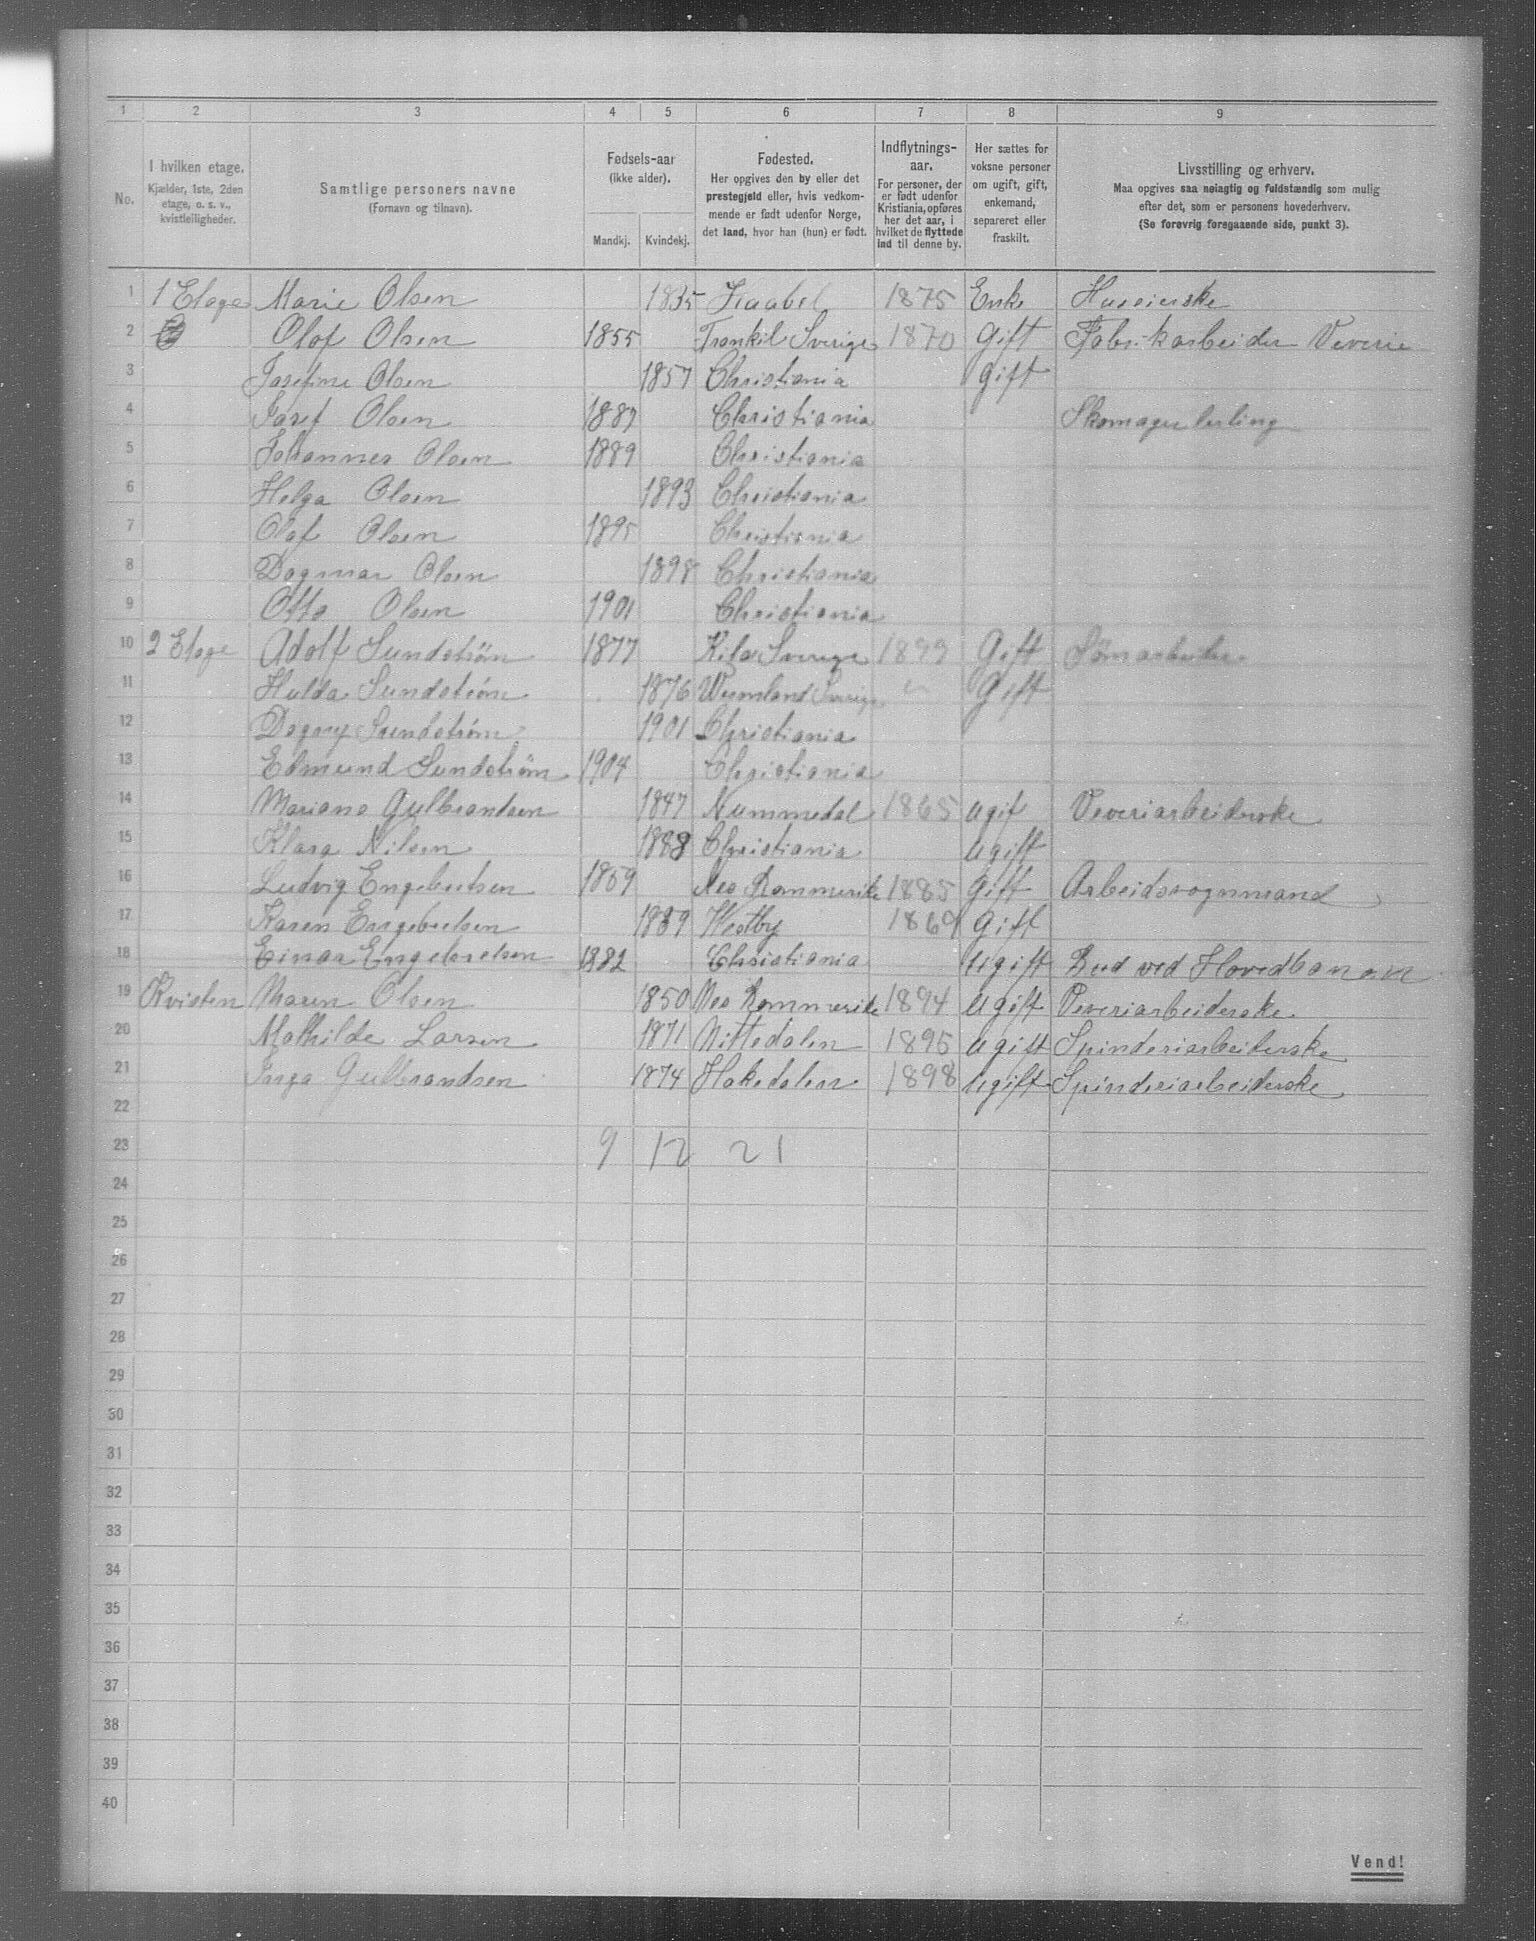 1 2 3 4 5 6 7 8 9
No.
I hvilken etage.
Kjælder, 1ste, 2den
etage, o. s. v.,
kvistleiligheder.
Samtlige personers navne
(Fornavn og tilnavn).
Fødsels-aar
(ikke alder).
Mandkj. Kvindekj.
Fødested.
Her opgives den by eller det
prestegjeld eller, hvis vedkom-
mende er født udenfor Norge,
det land, hvor han (hun) er født.
Indflytnings-
aar.
For personer, der
er født udenfor
Kristiania, opføres
her det aar, i
hvilket de flyttede
ind til denne by.
Her sættes for
voksne personer
om ugift, gift,
enkemand,
separeret eller
fraskilt.
Livsstilling og erhverv.
Maa opgives saa nøiagtig og fuldstændig som mulig
efter det, som er personens hovederhverv.
(Se forøvrig foregaaende side, punkt 3).
1 1 Etage Marie Olsen 1835 1875 Enke Huseierske
2 Olaf Olsen 1855 Trankil Sverige 1870 Gift Fabrikarbeider Veverie
3 Josefine Olsen 1857 Christiania gift
4 Josef Olsen 1887 Christiania Skomager lerling
5 Johannes Olsen 1889 Christiania
6 Helga Olsen 1893 Christiania
7 Olaf Olsen 1895 Christiania
8 Dagmar Olsen 1898 Christiania
9 Otto Olsen 1901 Christiania
10 2 Etage Adolf Sundstrøm 1877 Kila Sverige 1899 Gift
11 Hulda Sundstrøm 1876 Wermland Sverige " Gift
12 Dagny Sundstrøm 1901 Christiania
13 Edmund Sundstrøm 1904 Christiania
14 Mariane Gulbrandsen 1847 Nummedal 1865 ugif Veveriarbeiderske
15 Klara Nilsen 1888 Christiania ugift
16 Ludvig Engebretsen 1859 Nes Rommerike 1885 gift Arbeidsvognmand
17 Karen Engebretsen Westby 1869 Gift
18 Einar Engebretsen 1882 Christiania Ugift Bud ved Hovedbanen
19 Kvisten Maren Olsen 1850 Nes Rommerike 1894 ugift Veveriarbeiderske
20 Mathilde Larsen 1871 Nittedalen 1895 ugift Spinderiarbeiderske
21 Inga Gulbrandsen 1874 Hakedalen 1898 ugift Spinderiarbeiderske
22
23 9 12 21
24
25
26
27
28
29
30
31
32
33
34
35
36
37
38
39
40
Vend!